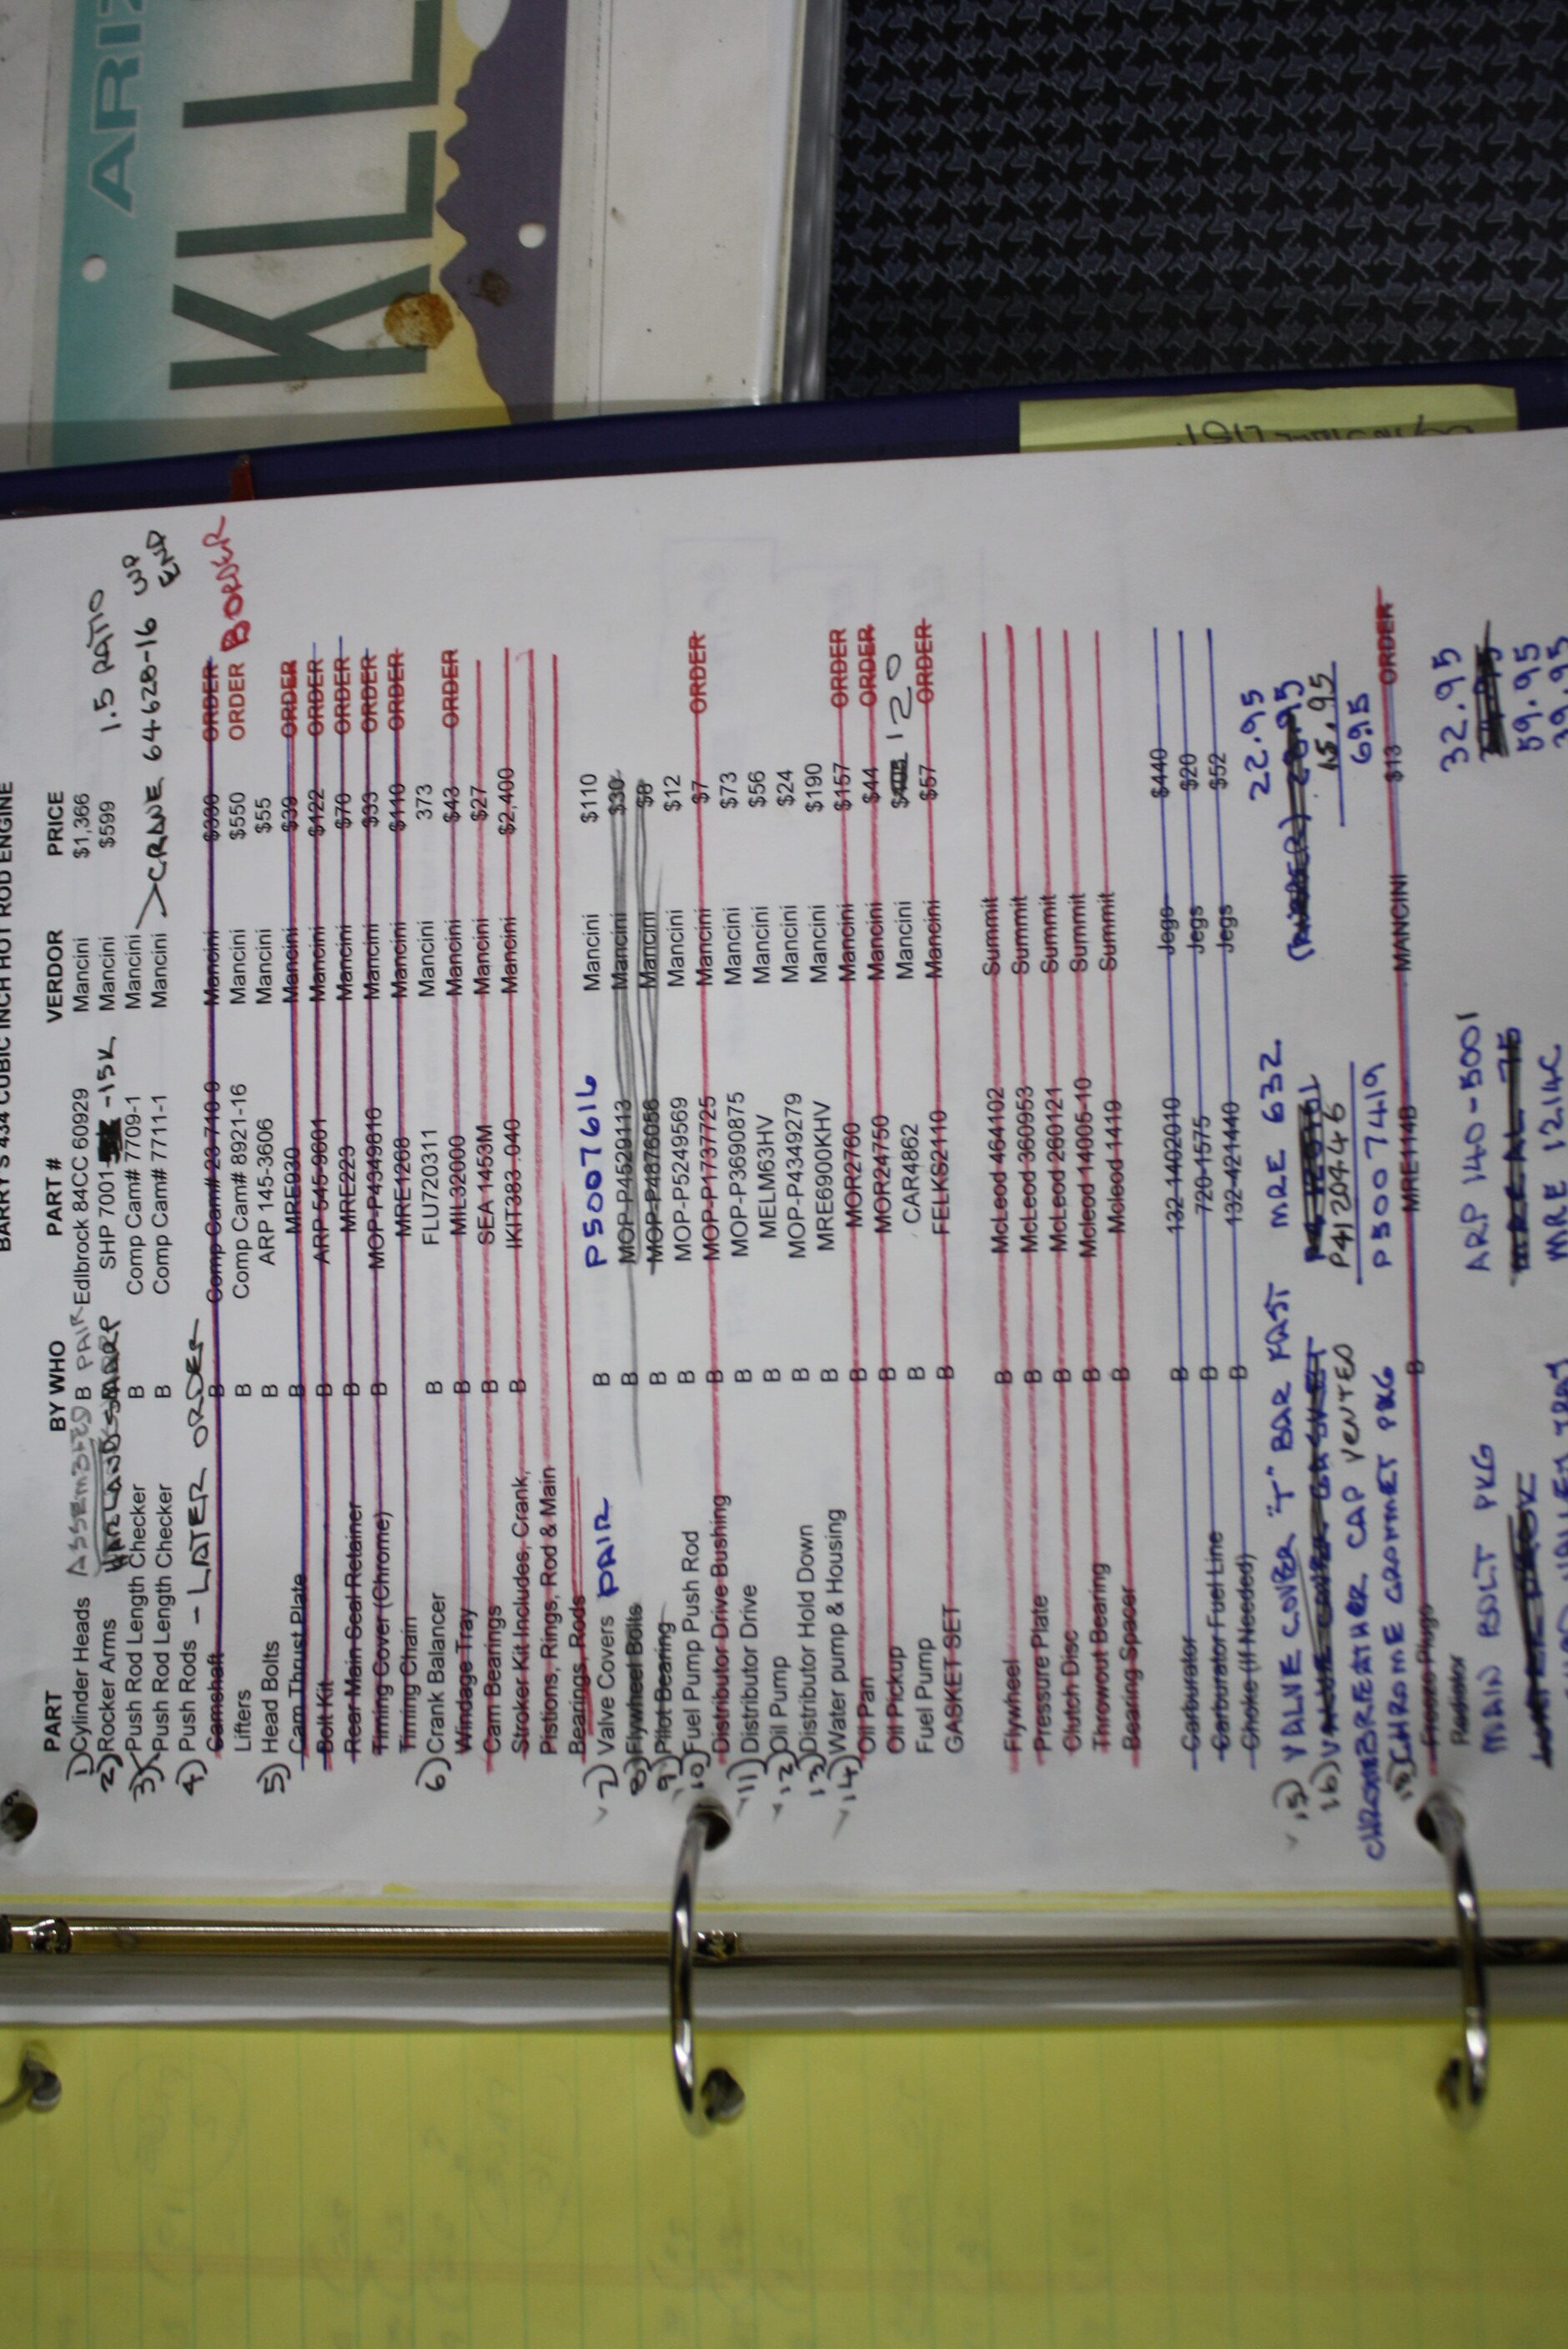 ARIZ
KLL
BARRY'S 434 CUBIC INCH HOT ROD ENGINE
PART BY WHO PART # VERDOR PRICE
1) Cylinder Heads ASSEMBLED B PAIR Edlbrock 84CC 60929 Mancini $1,366
2) Rocker Arms HARLAND SHARP SHP 7001- -15K Mancini $599 1.5 RATIO
3) Push Rod Length Checker B Comp Cam# 7709-1 Mancini
Push Rod Length Checker B Comp Cam# 7711-1 Mancini >CRANE 64628-16 UP END
4) Push Rods - LATER ORDER
Camshaft B Comp Cam# 23-710-9 Mancini ORDER
Lifters B Comp Cam# 8921-16 Mancini $550 ORDER BORDER
5) Head Bolts B ARP 145-3606 Mancini $55
Cam Thrust Plate B MRE930 Mancini $39 ORDER
Bolt Kit B ARP 545-9901 Mancini $122 ORDER
Rear Main Seal Retainer B MRE223 Mancini $70 ORDER
Timing Cover (Chrome) B MOP-P4349816 Mancini $33 ORDER
Timing Chain MRE1268 Mancini $110 ORDER
6) Crank Balancer B FLU720311 Mancini 373
Windage Tray B MIL32000 Mancini $43 ORDER
Cam Bearings B SEA 1453M Mancini $27
Stroker Kit Includes, Crank, B IKIT383 .040 Mancini $2,400
Pistions, Rings, Rod & Main
Bearings, Rods
7) Valve Covers PAIR B P5007616 Mancini $110
8) Flywheel Bolts B MOP-P4529113 Mancini $30
9) Pilot Bearing B MOP-P4876056 Mancini $8
10) Fuel Pump Push Rod B MOP-P5249569 Mancini $12
Distributor Drive Bushing B MOP-P1737725 Mancini $7 ORDER
11) Distributor Drive B MOP-P3690875 Mancini $73
12) Oil Pump B MELM63HV Mancini $56
13) Distributor Hold Down B MOP-P4349279 Mancini $24
14) Water pump & Housing B MRE6900KHV Mancini $190
Oil Pan B MOR2760 Mancini $157 ORDER
Oil Pickup B MOR24750 Mancini $44 ORDER
Fuel Pump B CAR4862 Mancini 120
GASKET SET B FELKS2110 Mancini $57 ORDER
Flywheel B McLeod 464102 Summit
Pressure Plate B McLeod 360953 Summit
Clutch Disc B McLeod 260121 Summit
Throwout Bearing B Mcleod 14005-10 Summit
Bearing Spacer B Mcleod 1419 Summit
Carburator B 132-1402010 Jegs $440
Carburator Fuel Line B 720-1575 Jegs $20
Choke (If Needed) B 132-421440 Jegs $52
15) VALVE COVER "T" BAR FAST MRE 632 22.95
16) VALVE COVER GASKET (RUBBER)
CHROME BREATHER CAP VENTED P4120446 15.95
18) CHROME GROMMET PKG P5007419 6.95
Freeze Plugs B MRE1114B MANCINI $13 ORDER
Radiator
MAIN BOLT PKG ARP 140-5001 32.95
59.95
MRE 1214C 39.95